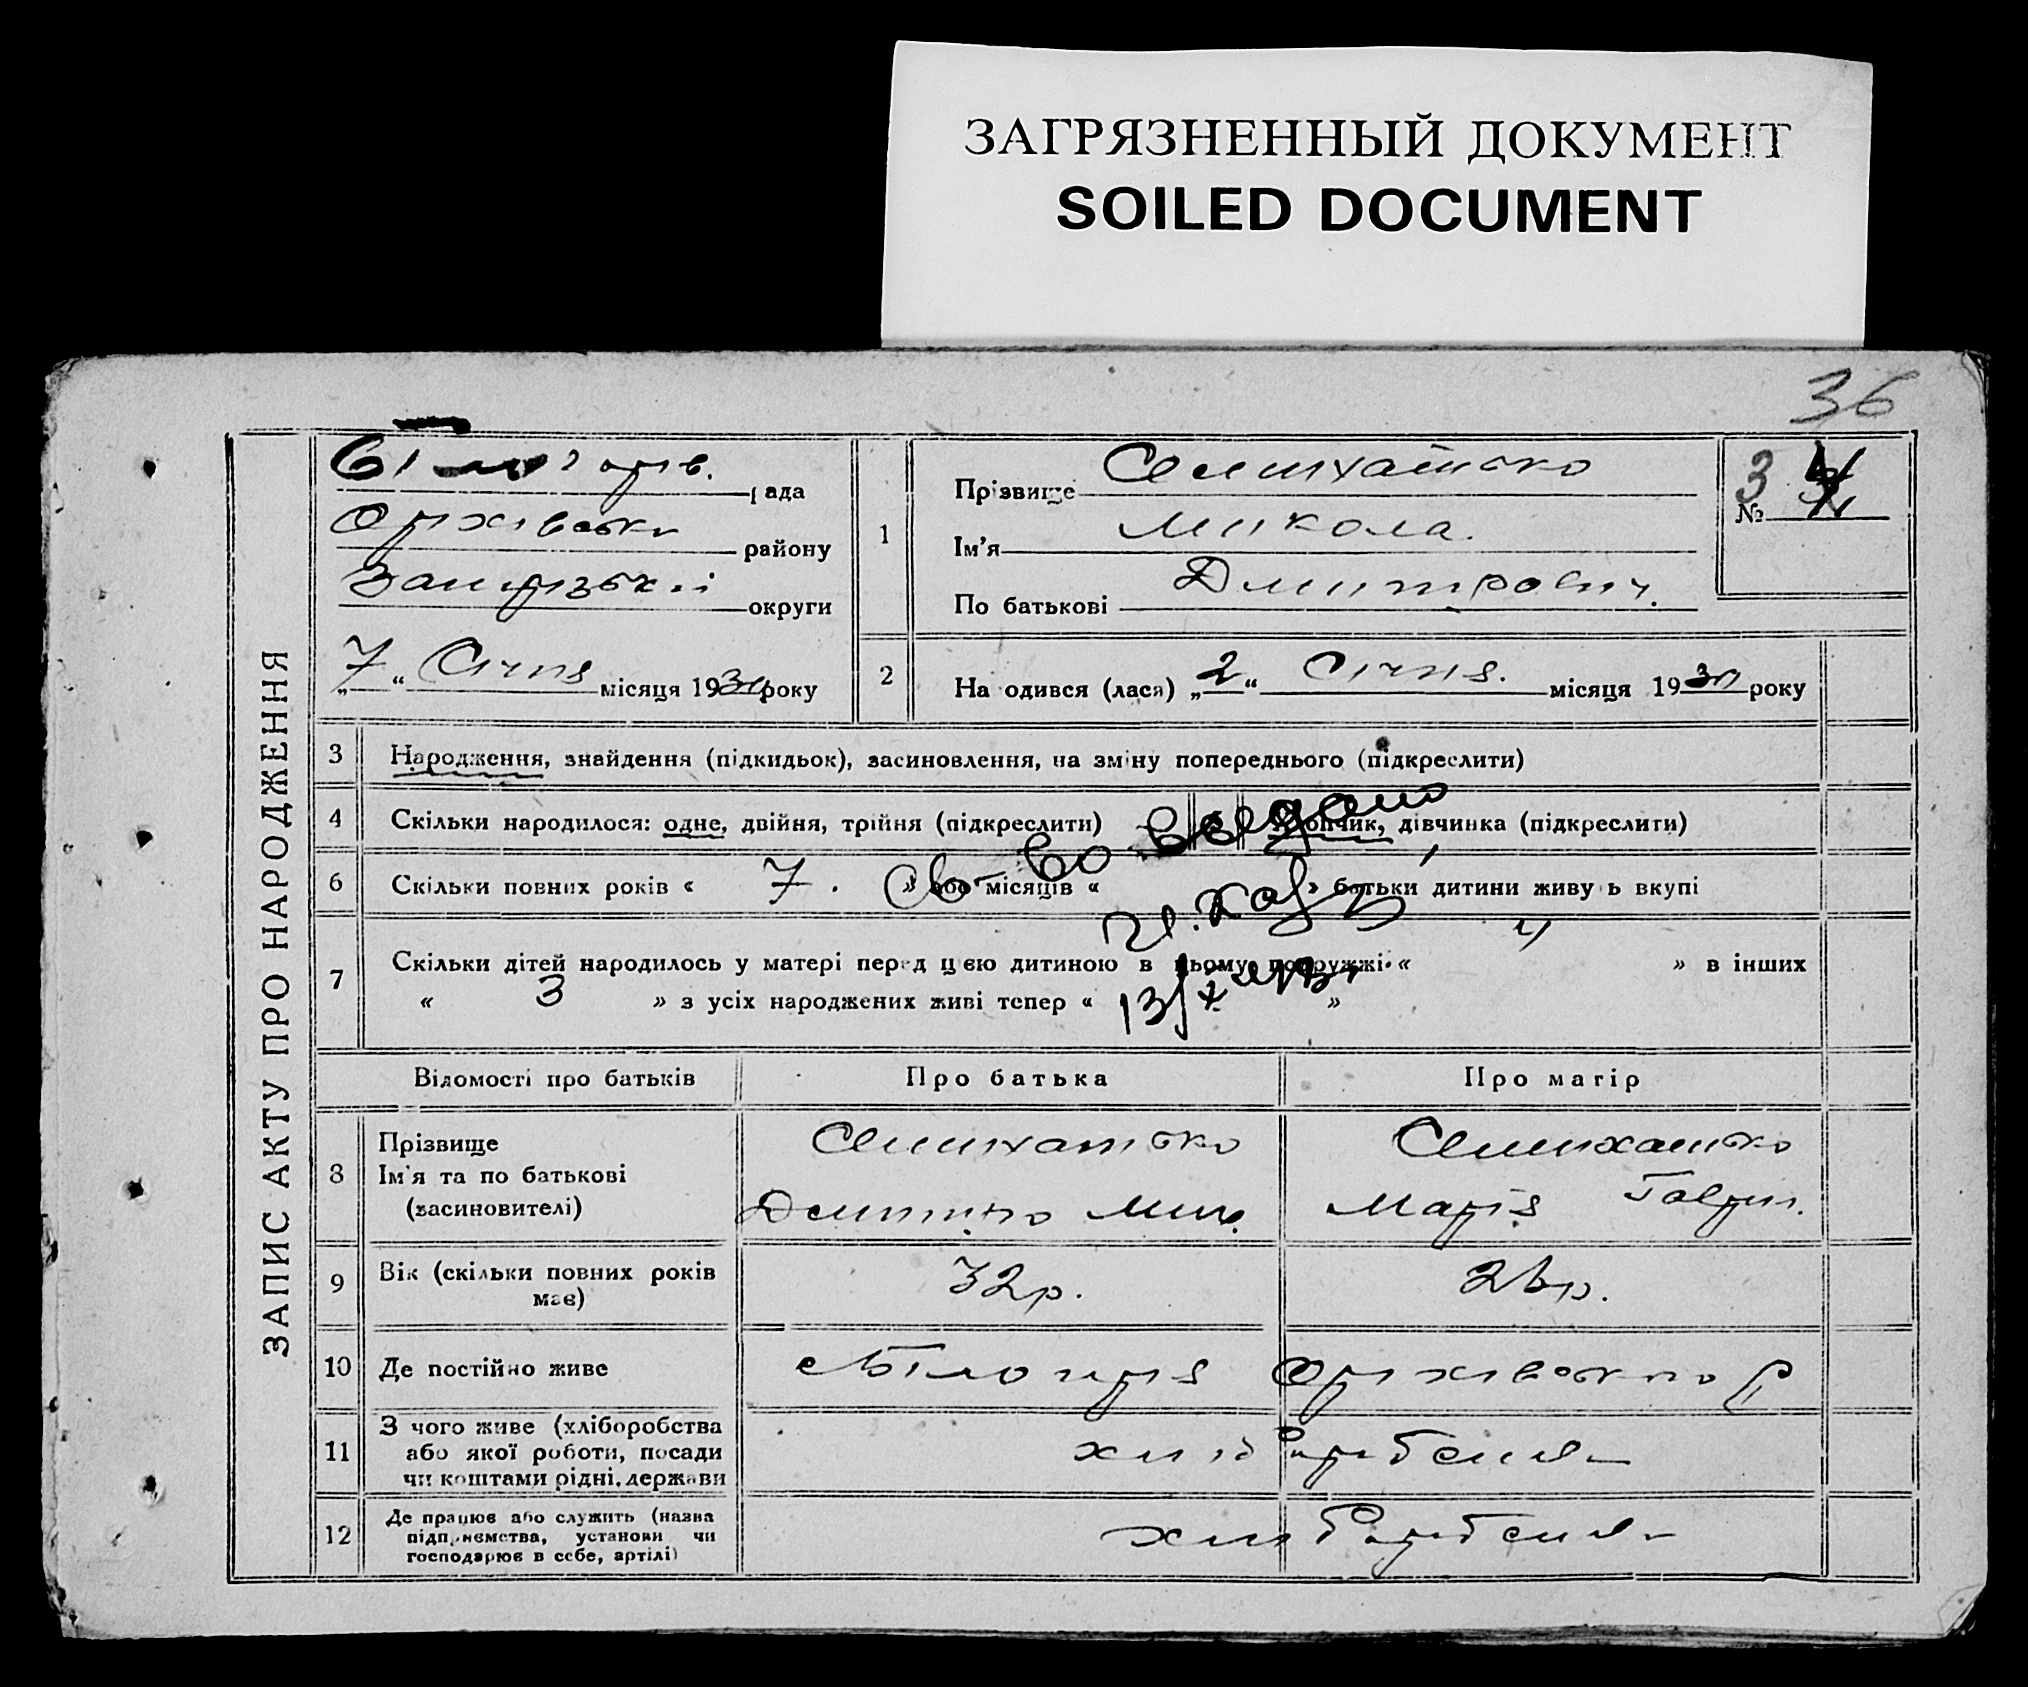 ЗАГРЯЗНЕННЫЙ ДОКУМЕНТ
SOILED DOCUMENT
36
ЗАПИС АКТУ ПРО НАРОДЖЕННЯ
рада
району
округи
„7“ Січня місяця 1930 року
1
Прізвище
Ім’я Микола.
По батькові Дмитрович.
3
№
2
Народився (лася) „2“ Січня. місяця 1930 року
3
Народження, знайдення (підкидьок), засиновлення, на зміну попереднього (підкреслити)
4
Скільки народилося: одне, двійня, трійня (підкреслити)
хлопчик, дівчинка (підкреслити)
6
Скільки повних років « 7. » або місяців « » батьки дитини живуть вкупі
Св-во выдано
7
Скільки дітей народилось у матері перед цією дитиною в цьому подружжі « » в інших
« 3 » з усіх народжених живі тепер « »
Відомості про батьків
Про батька
Про матір
8
Прізвище
Ім’я та по батькові
(засиновителі)
Дмитро Мик.
Марія Гаври.
9
Вік (скільки повних років
має)
32р.
10
Де постійно живе
с Білогіря Оріхівськго р
11
З чого живе (хліборобства
або якої роботи, посади
чи коштами рідні, держави
12
Де працює або служить (назва
підприємства, установи чи
господарює в себе, артілі)